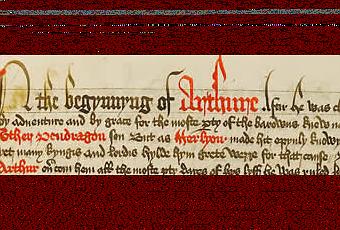 the begynnyng of Arthure. Aftir he was
by adventure and by grace for the moste pty of the barowns knew
Vther Pendragon son But as Merlyon made hit opynly
yet many kyngis and lordis hylde hym grete werre for that cause
Arthur ou com hem all the moste pty dayes of hys lyff he was ruled